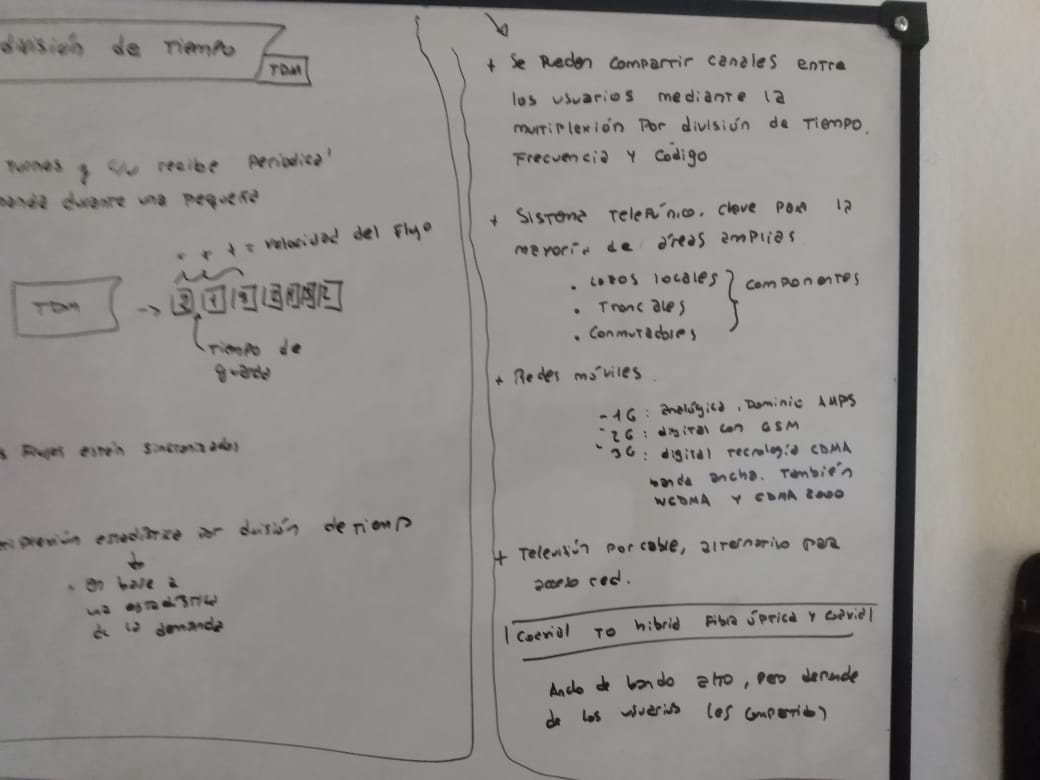 división de Tiempo
TDM
Turnos y c/u recibe Periodica'
banda durante una pequeña
= velocidad del Flujo
TDM
Tiempo de
guarda
s Flujos estén Sincronizados
estadística por división de tiempo
en base a
una estadística
de la demanda
+ Se Pueden compartir canales entre
los usuarios mediante la
multiplexión Por división de Tiempo,
Frecuencia y código
+ Sistema Telefónico, clave para la
mayoría de áreas amplias
. Lazos locales
. Troncales
. Conmutadores
componentes
+ Redes móviles
- 1G: analógica, Dominio AMPS
- 2G: digital con GSM
- 3G: digital Tecnología CDMA
banda ancha. También
WCDMA y CDMA 2000
+ Televisión por cable, alternativo para
acceso red.
Coaxial TO hibrid Fibra óptica y coaxial
Ancho de banda alto, pero depende
de los usuarios (es compartido)